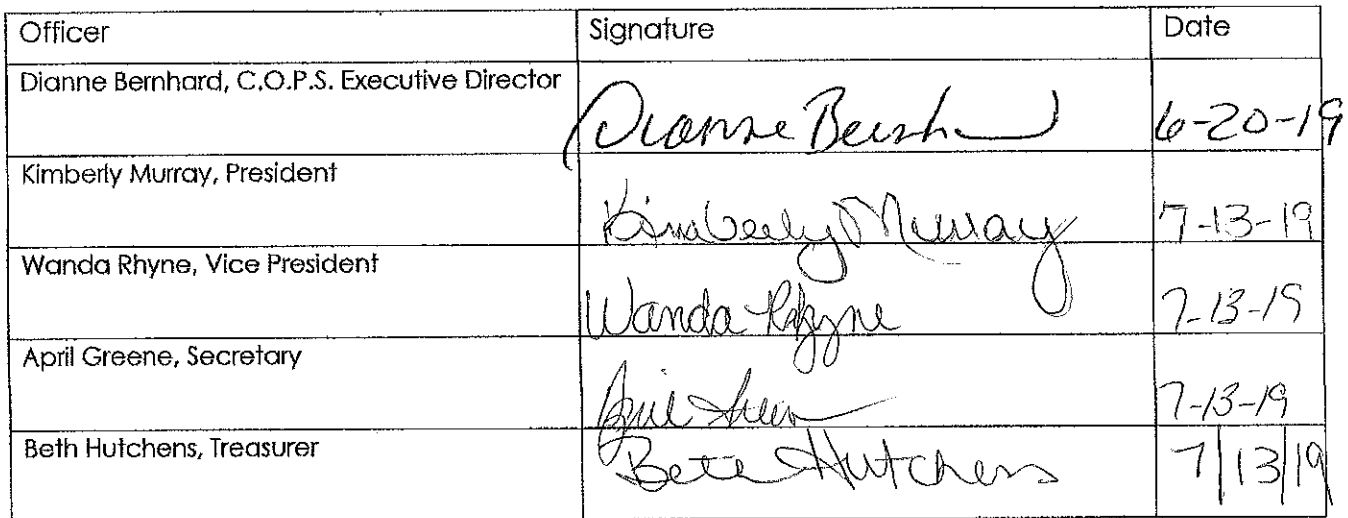 Officer Signature Date
Dianne Bernhard, C.O.P.S. Executive Director Dianne Bernh 6-20-19
Kimberly Murray, President Kimberly Murray 7-13-19
Wanda Rhyne, Vice President Wanda Rhyne 7-13-19
April Greene, Secretary April Green 7-13-19
Beth Hutchens, Treasurer Beth Hutchens 7/13/19